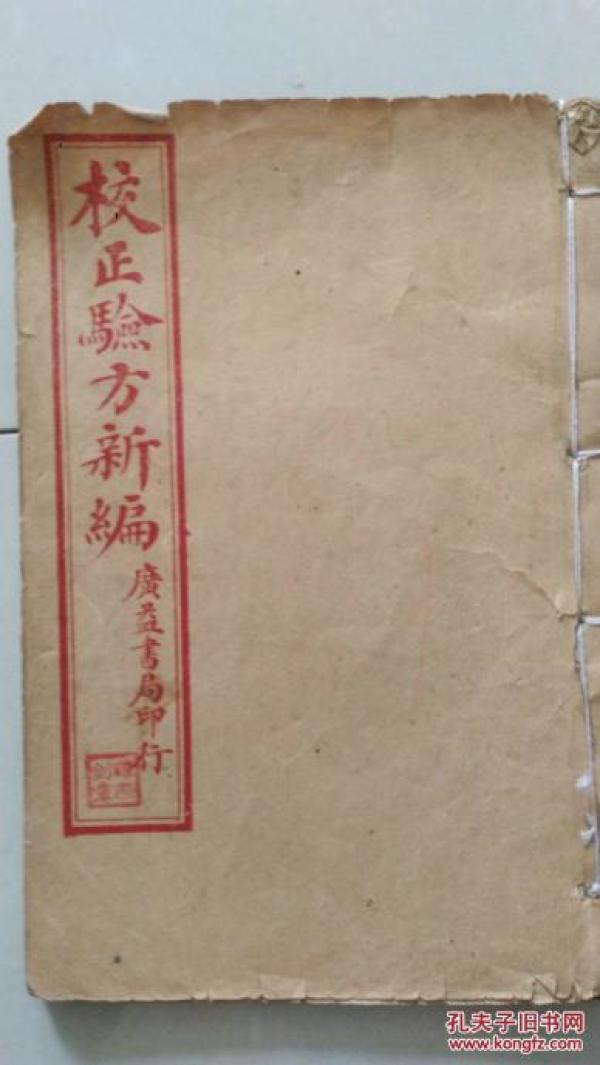 校正驗方新編
廣益書局印行
孔夫子旧书网
www.kongfz.com